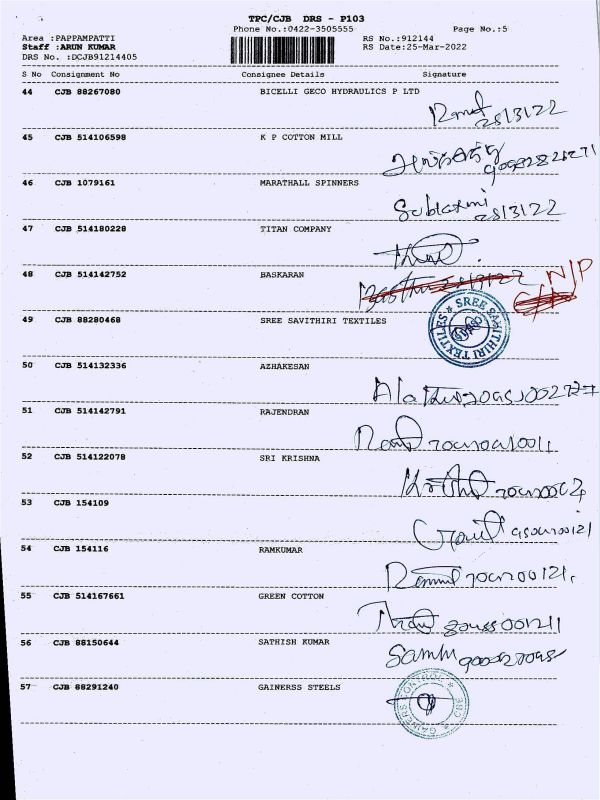 TPC/CJB DRS - P103
Phone No.:0422-3505555 Page No.:5
Area :PAPPAMPATTI RS No.:912144
Staff :ARUN KUMAR RS Date:25-Mar-2022
DRS No. :DCJB91214405
S No Consignment No Consignee Details Signature
44 CJB 88267080 BICELLI GECO HYDRAULICS P LTD
25/3/22
45 CJB 514106598 K P COTTON MILL
46 CJB 1079161 MARATHALL SPINNERS
25/3/22
47 CJB 514180228 TITAN COMPANY
48 CJB 514142752 BASKARAN
N/P
49 CJB 88280468 SREE SAVITHIRI TEXTILES
SREE SAVITHIRI TEXTILES
50 CJB 514132336 AZHAKESAN
51 CJB 514142791 RAJENDRAN
52 CJB 514122078 SRI KRISHNA
53 CJB 154109
54 CJB 154116 RAMKUMAR
55 CJB 514167661 GREEN COTTON
56 CJB 88150644 SATHISH KUMAR
57 CJB 88291240 GAINERSS STEELS